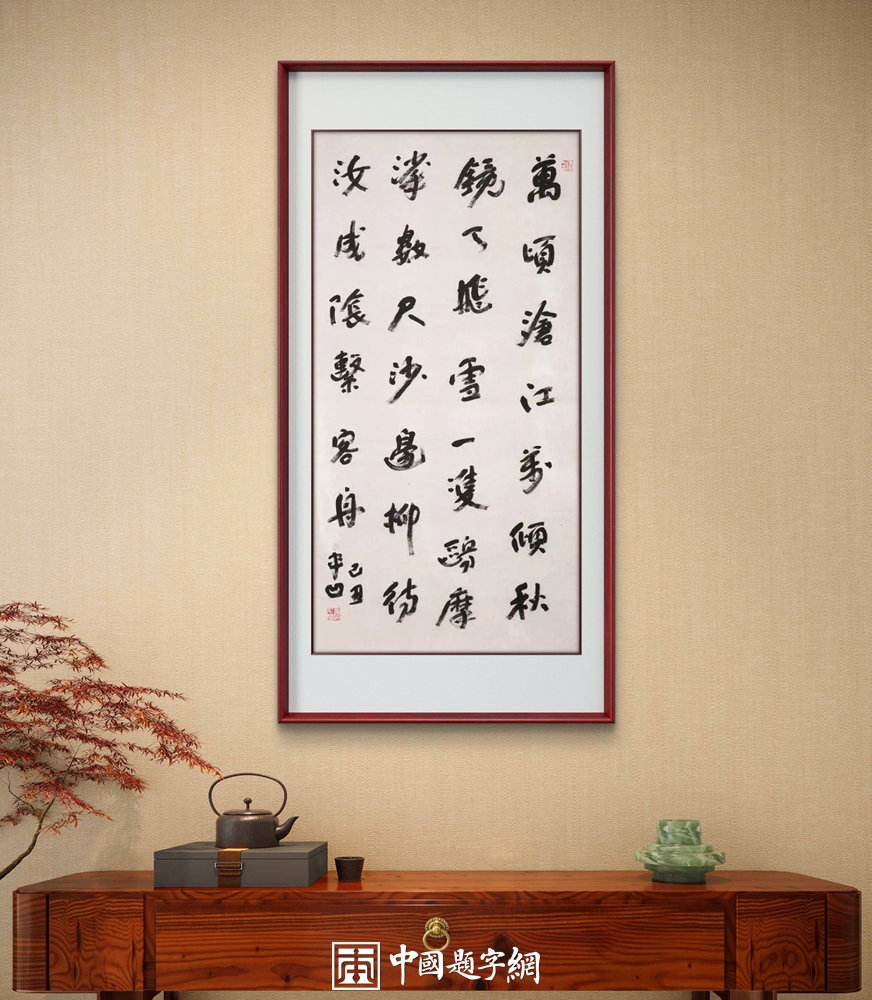 萬頃滄江萬傾秋
鏡天飛雪一雙鷗摩
挲數尺沙邊柳待
汝成陰繫客舟
己丑
平凹
中國題字網